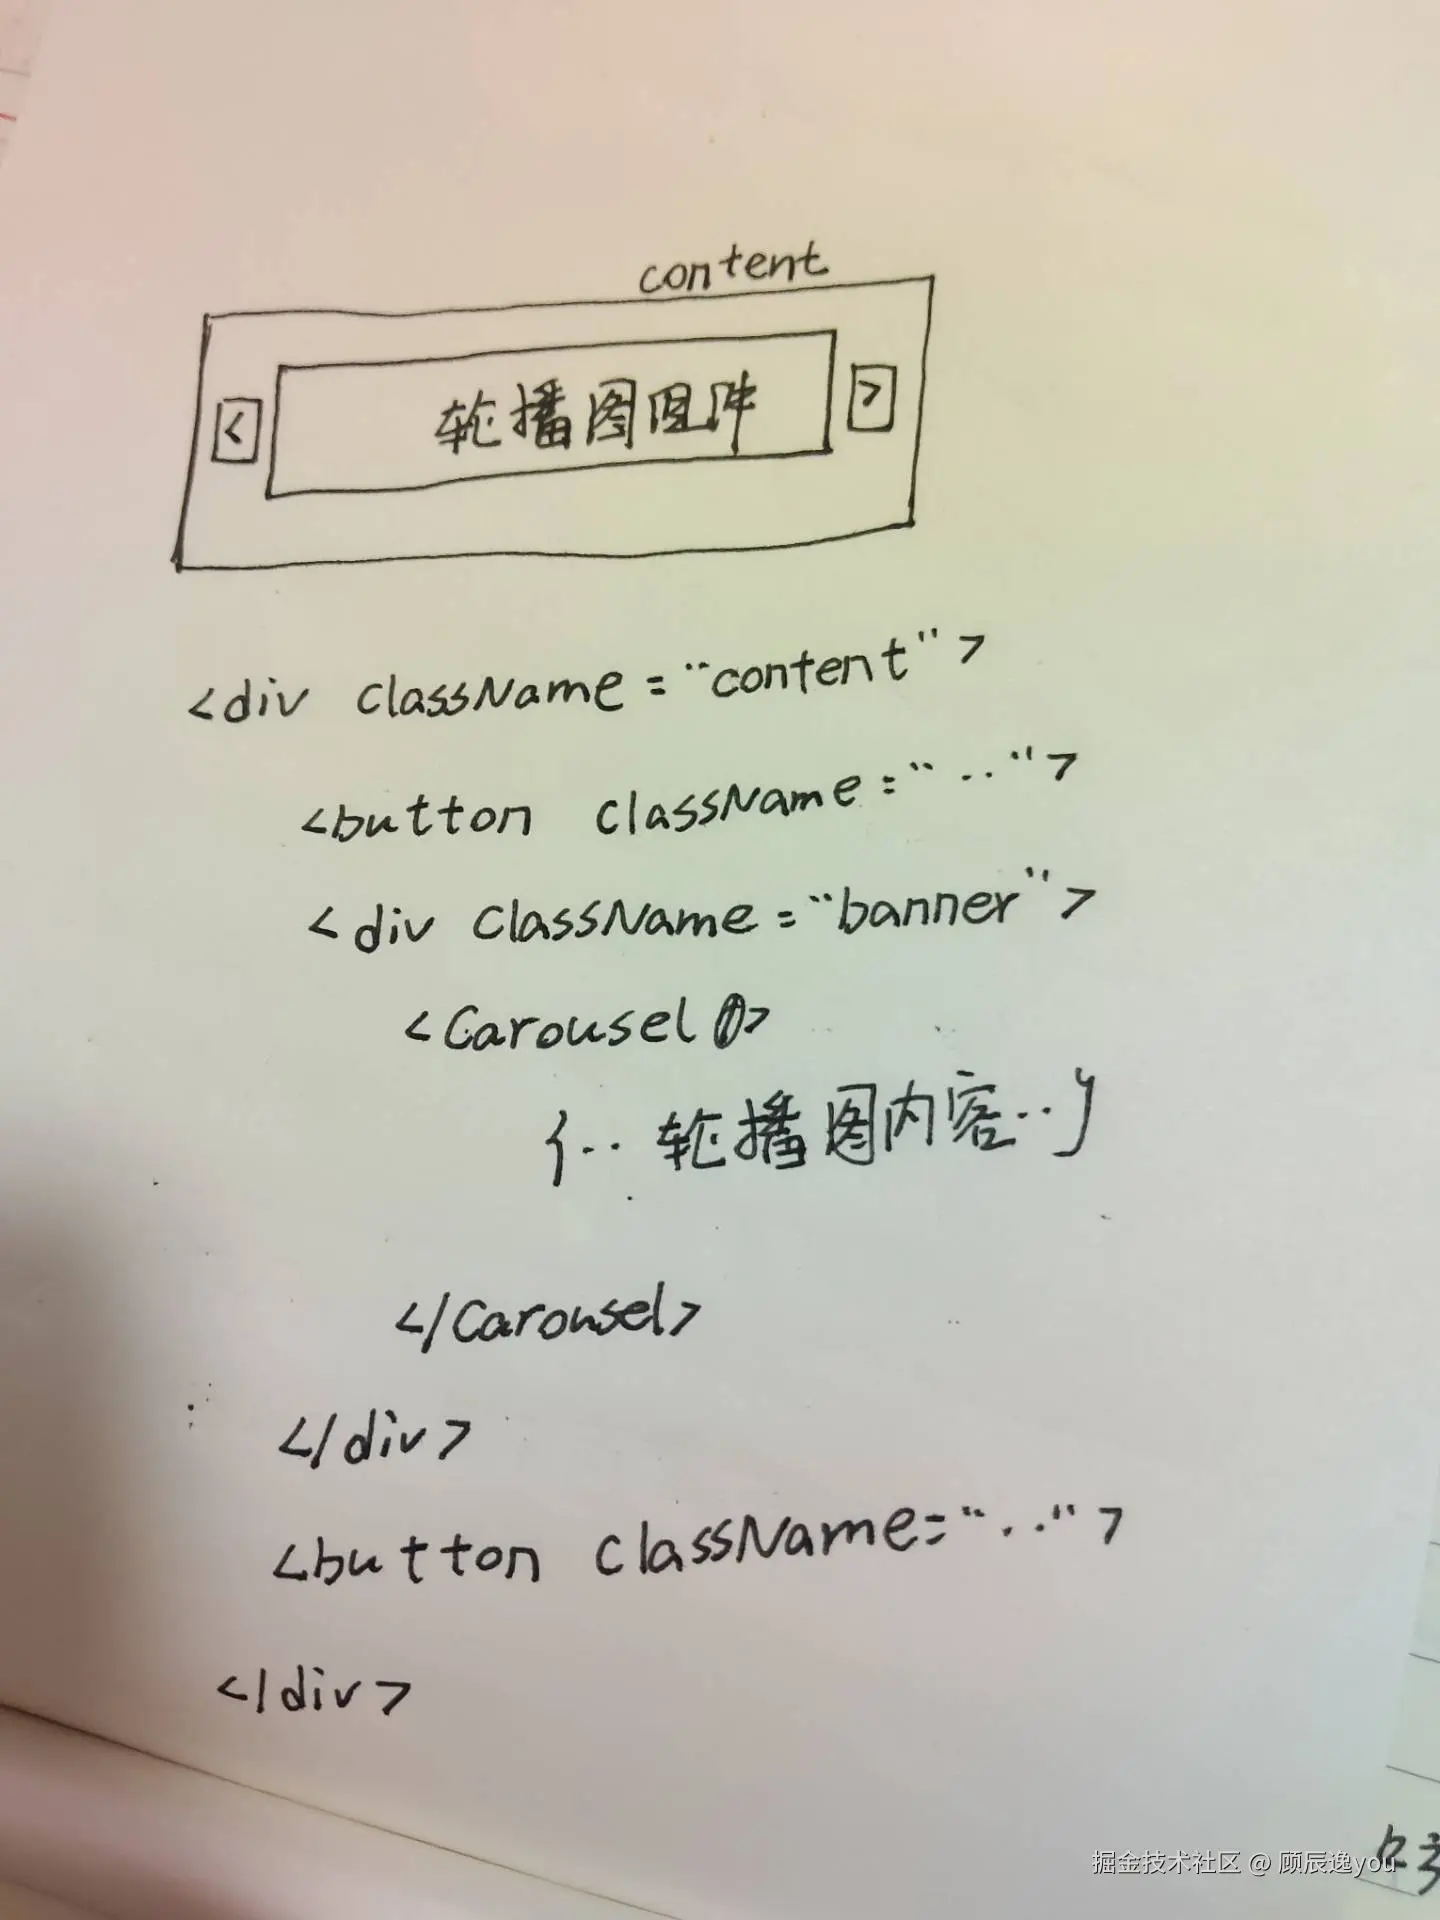 content
< 轮播图组件 >
<div className="content">
<button className="..">
<div className="banner">
<Carousel>
{.. 轮播图内容..}
</Carousel>
</div>
<button className="..">
</div>
掘金技术社区 @ 顾辰逸you